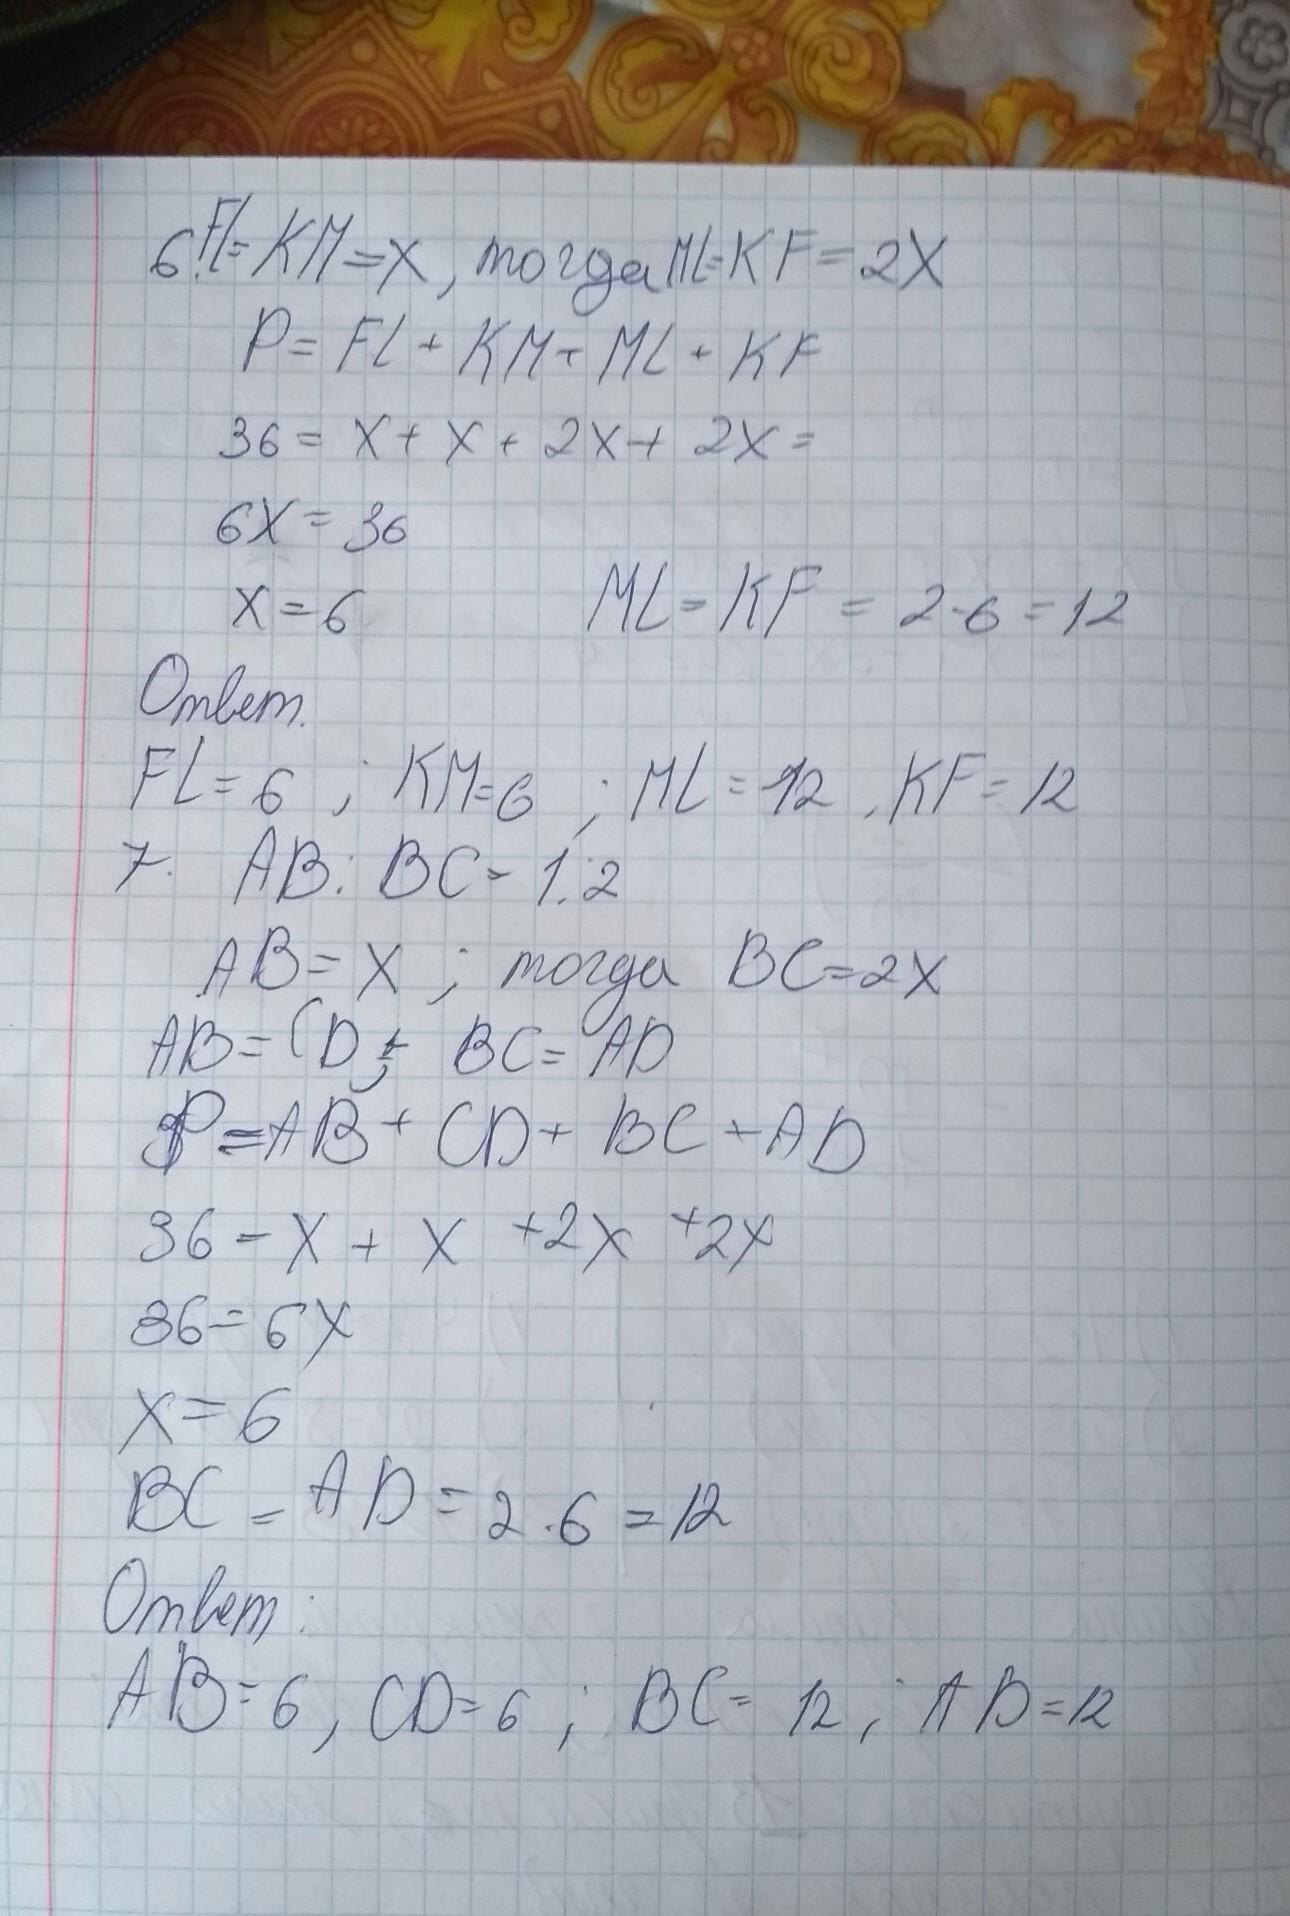 6. FL=KM=X, тогда ML=KF=2X
P=FL+KM+ML+KF
36=X+X+2X+2X=
6X=36
X=6 ML=KF=2·6=12
Ответ.
FL=6; KM=6; ML=12, KF=12
7. AB:BC=1:2
AB=X; тогда BC=2X
AB=CD; BC=AD
P=AB+CD+BC+AD
36=X+X+2X+2X
36=6X
X=6
BC=AD=2·6=12
Ответ:
AB=6, CD=6; BC=12; AD=12